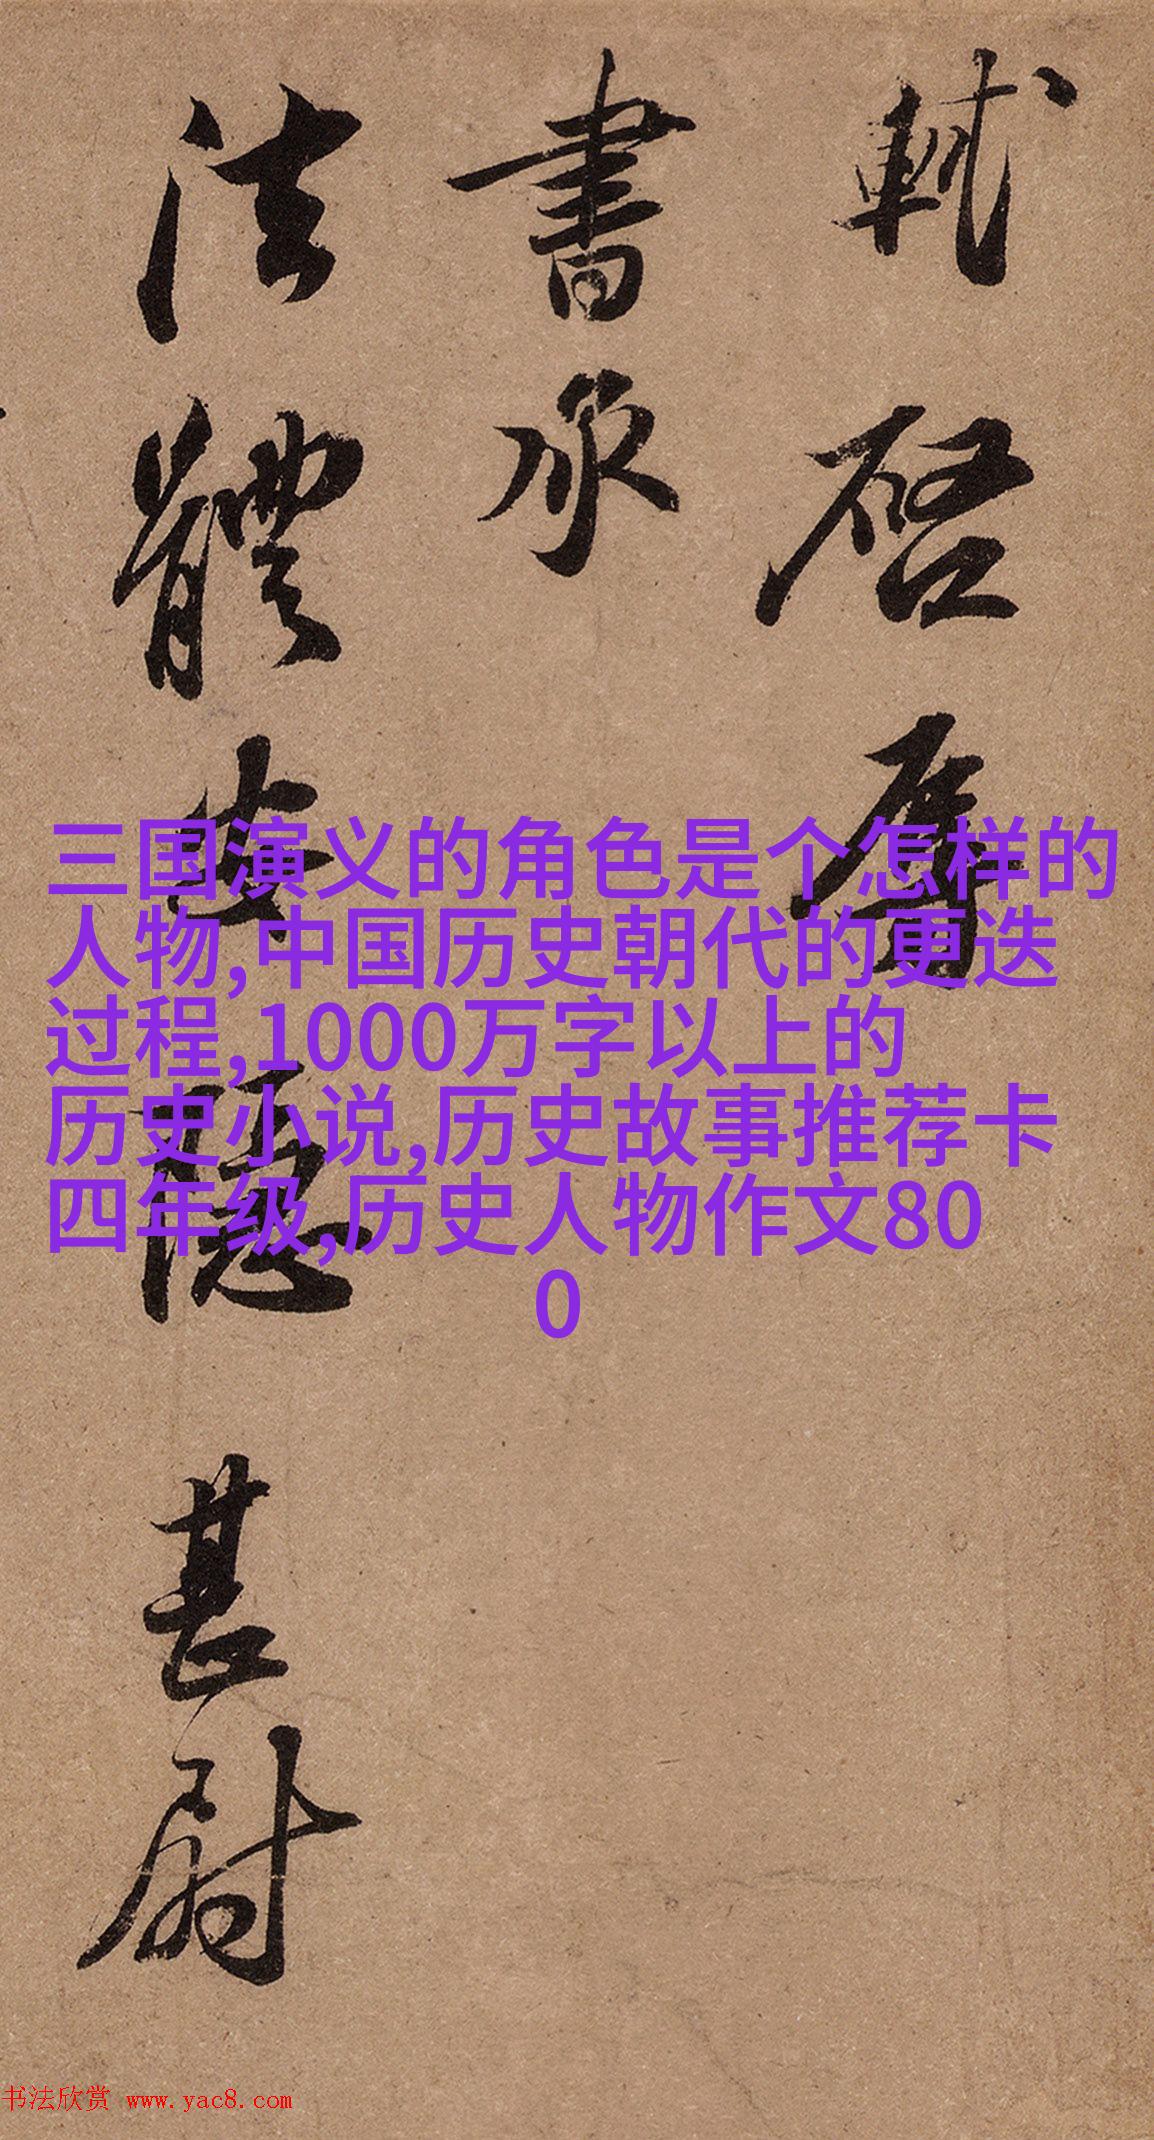 軾啓辱
書承
法體安隱甚慰
三国演义的角色是个怎样的
人物,中国历史朝代的更迭
过程,1000万字以上的
历史小说,历史故事推荐卡
四年级,历史人物作文80
0
书法欣赏 www.yac8.com